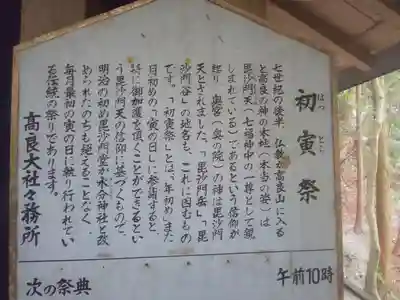 初寅祭
はつ とら
七世紀の後半、仏教が高良山に入る
と高良の神の本地(本当の姿)は
毘沙門天(七福神中の一尊として親
しまれている)であるという信仰が
起り、奥宮(奥の院)の神は毘沙門
天とされました。「毘沙門岳」「毘
沙門谷」の地名も、これに因むもの
です。「初寅祭」とは、年初め、また
月初めの「寅の日」に参詣すると、
特に御加護を頂くことができるとい
う毘沙門天の信仰に基づくもので、
明治の初め毘沙門堂が水分神社と改
められたのちも絶えることなく、
毎月最初の寅の日に執り行われてい
る伝統の祭りであります。
高良大社々務所
午前10時
次の祭典